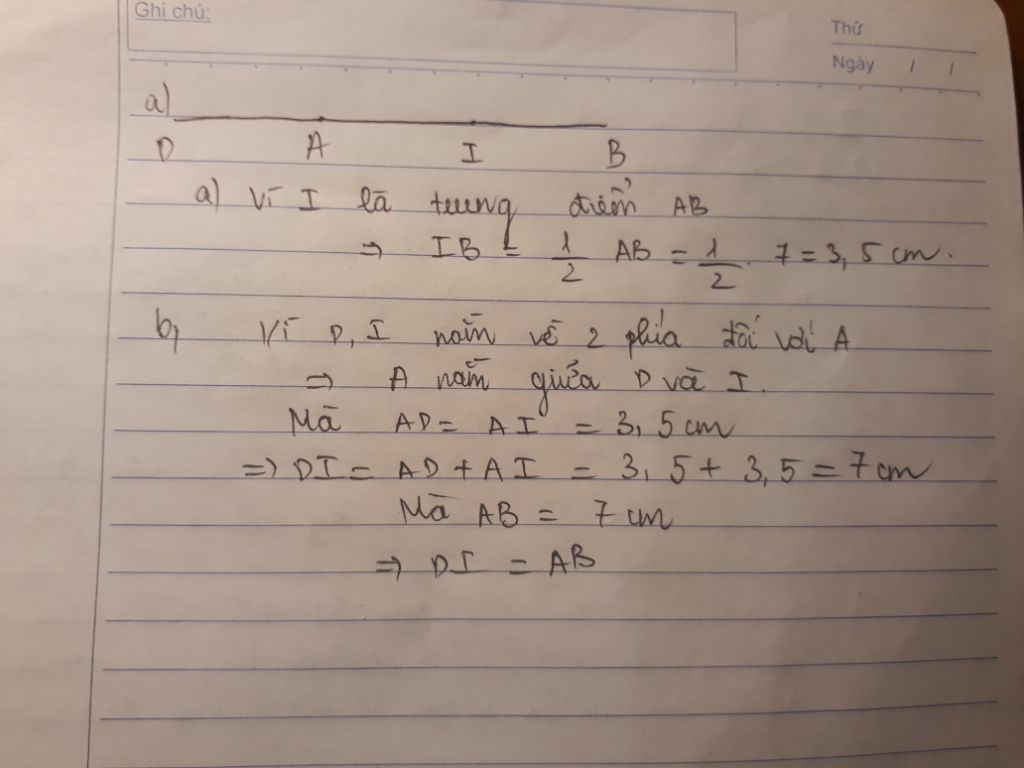 Ghi chú:
Thứ
Ngày / /
a)
D A I B
a) Vì I là trung điểm AB
⇒ IB = 1/2 AB = 1/2 . 7 = 3,5 cm.
b, Vì D, I nằm về 2 phía đối với A
⇒ A nằm giữa D và I.
Mà AD = AI = 3,5 cm
⇒ DI = AD + AI = 3,5 + 3,5 = 7 cm
Mà AB = 7 cm
⇒ DI = AB